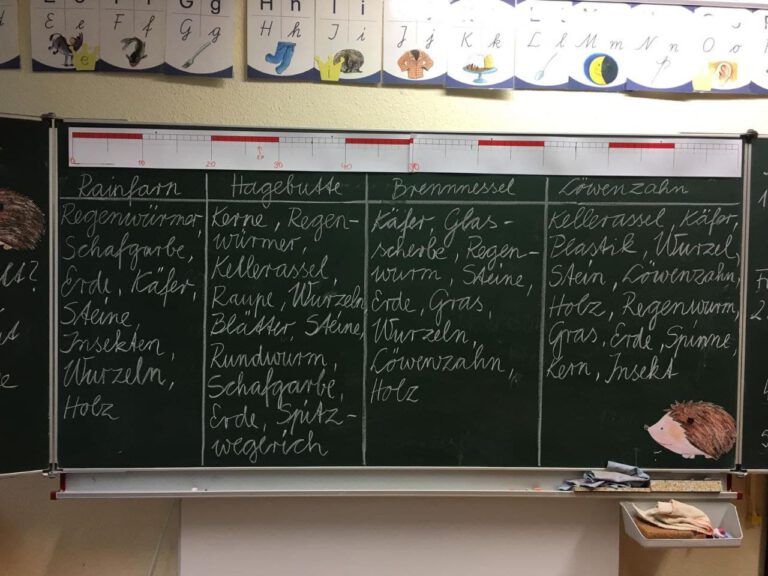 G g
H h
I i
E e
F f
G g
H h
I i
J j
K k
L l
M m
N n
O o
e
i
0
10
20
30
40
50
Rainfarn
Regenwürmer,
Schafgarbe,
Erde, Käfer,
Steine,
Insekten,
Wurzeln,
Holz
Hagebutte
Kerne, Regen-
würmer,
Kellerassel,
Raupe, Wurzeln,
Blätter, Steine,
Rundwurm,
Schafgarbe,
Erde, Spitz-
wegerich
Brennnessel
Käfer, Glas-
scherbe, Regen-
wurm, Steine,
Erde, Gras,
Wurzeln,
Löwenzahn,
Holz
Löwenzahn
Kellerassel, Käfer,
Plastik, Wurzel,
Stein, Löwenzahn,
Holz, Regenwurm,
Gras, Erde, Spinne,
Kern, Insekt